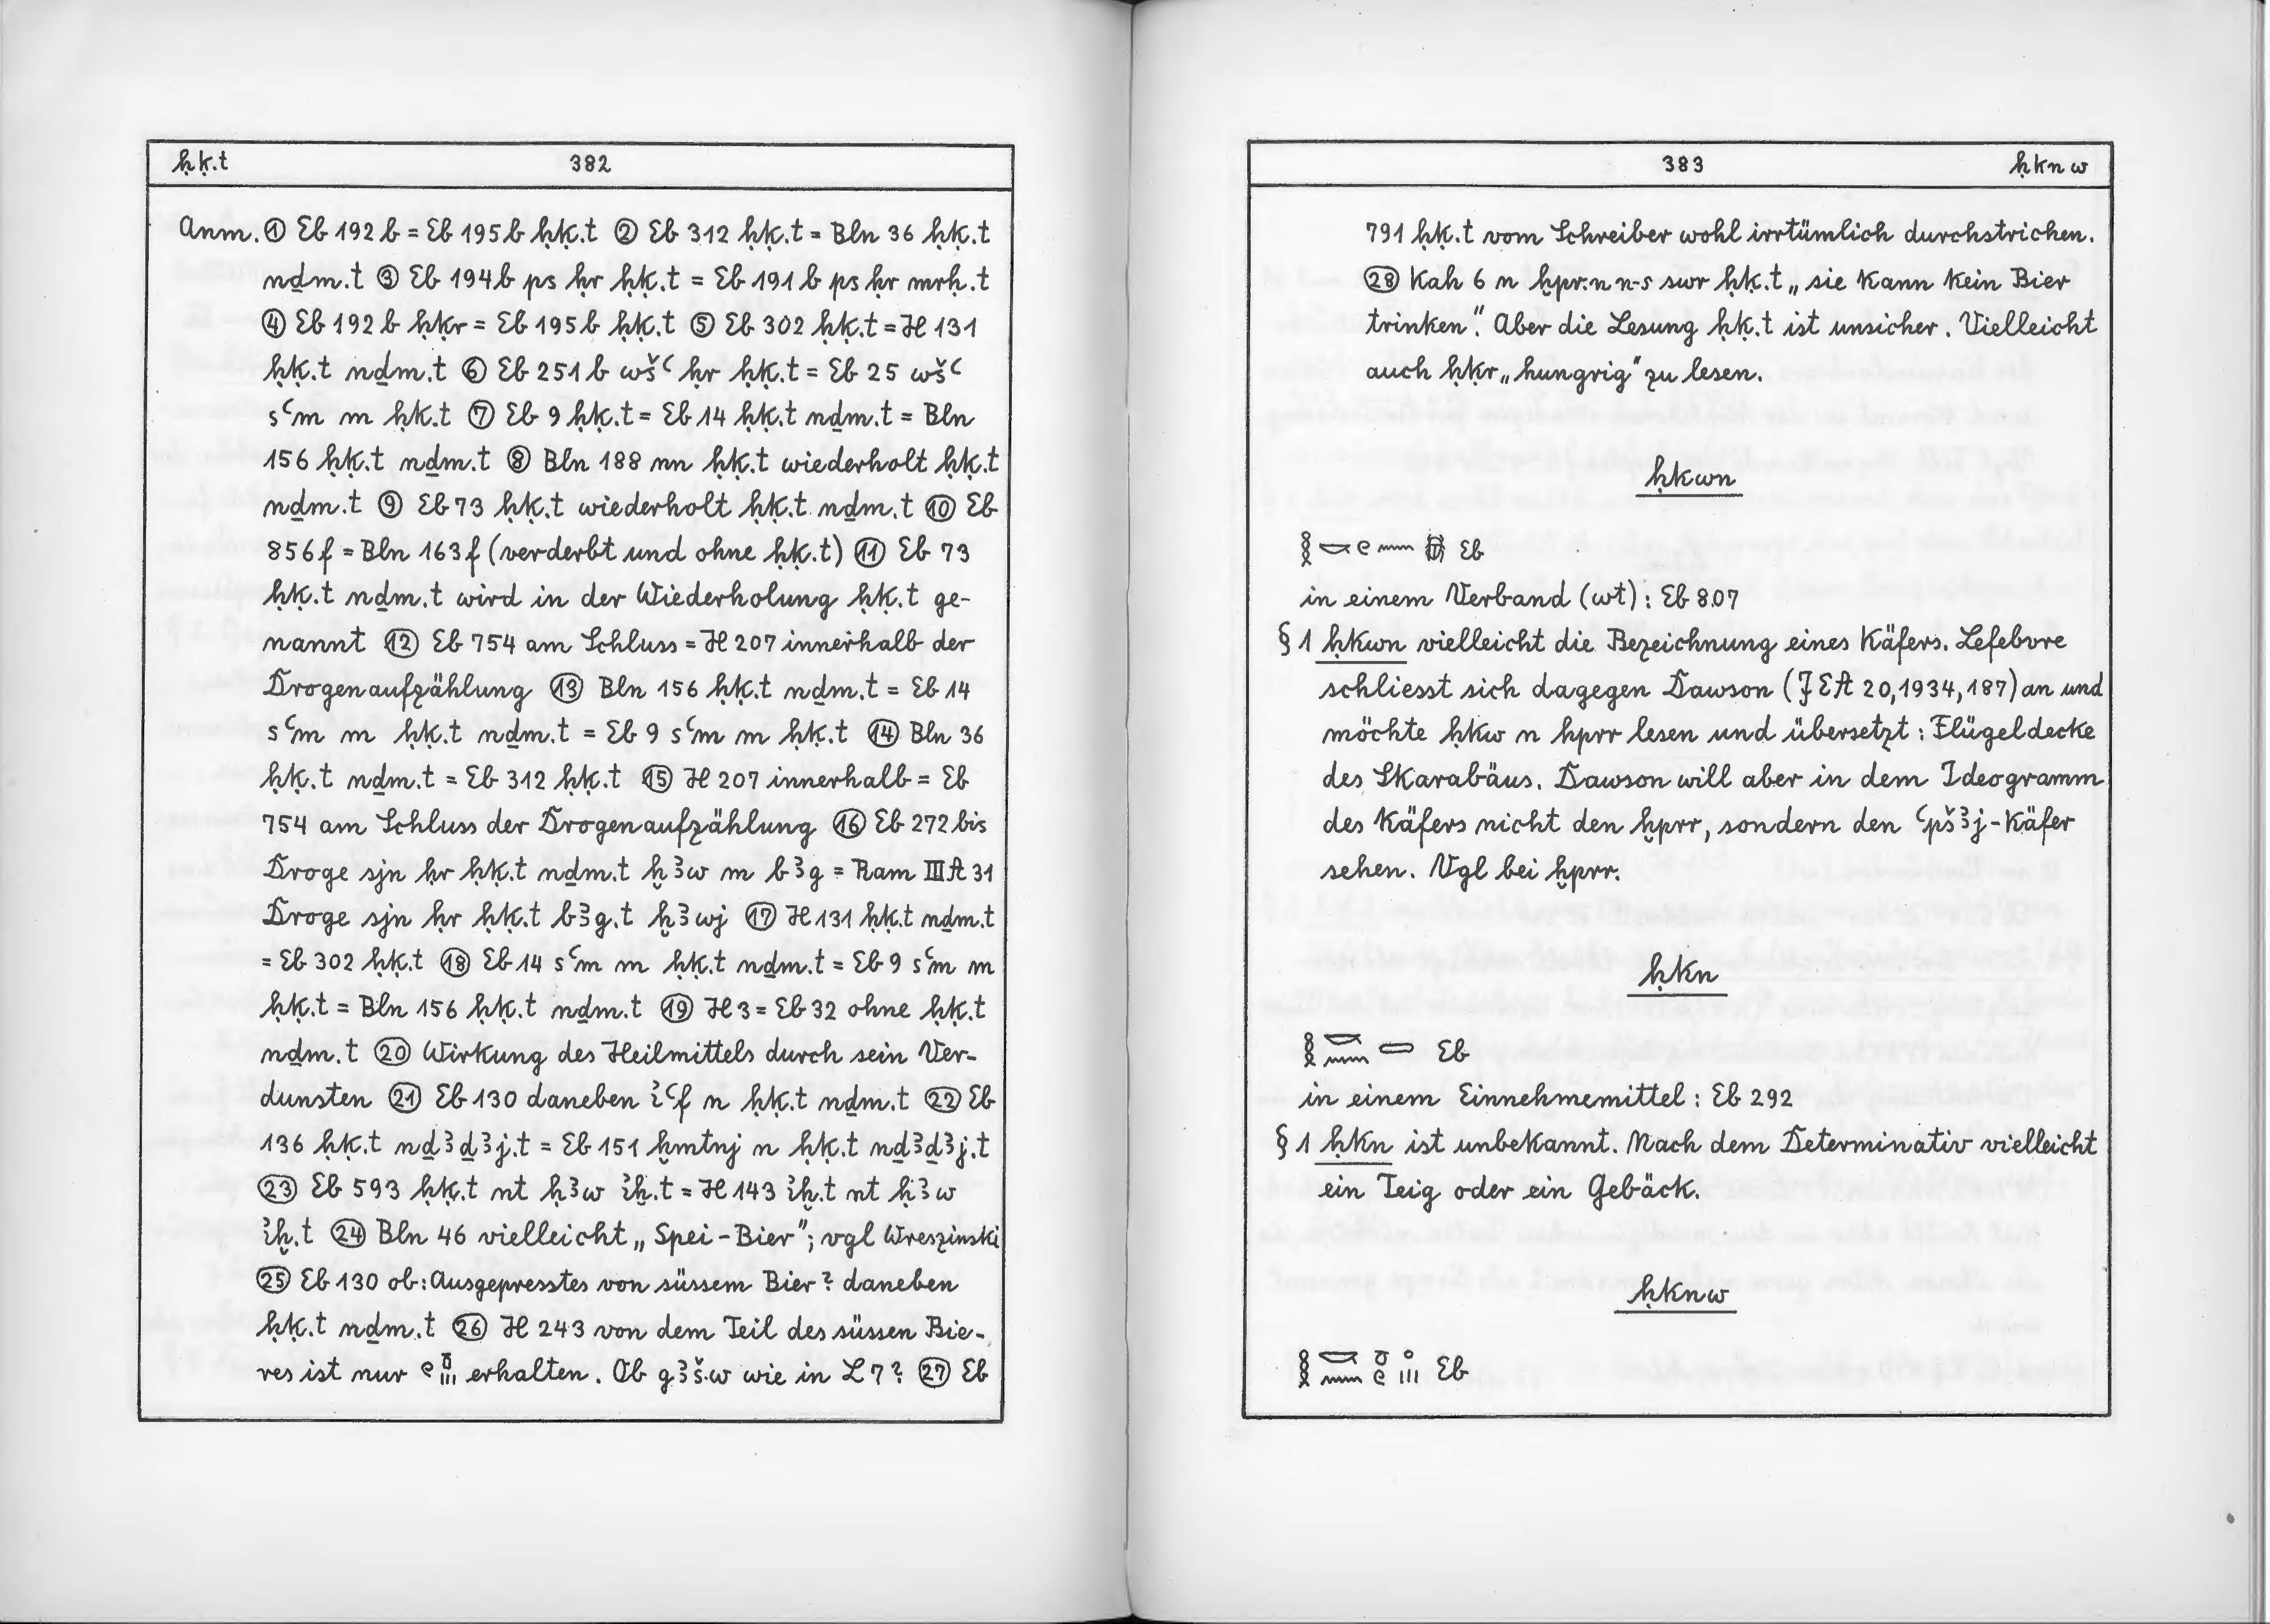 ḥḳ.t 382
Anm. ① Eb 192 b = Eb 195 b ḥḳ.t ② Eb 312 ḥḳ.t = Bln 36 ḥḳ.t
nḏm.t ③ Eb 194 b ps ḥr ḥḳ.t = Eb 191 b ps ḥr mrḥ.t
④ Eb 192 b ḥḳr = Eb 195 b ḥḳ.t ⑤ Eb 302 ḥḳ.t = H 131
ḥḳ.t nḏm.t ⑥ Eb 251 b wšꜥ ḥr ḥḳ.t = Eb 25 wšꜥ
sꜥm m ḥḳ.t ⑦ Eb 9 ḥḳ.t = Eb 14 ḥḳ.t nḏm.t = Bln
156 ḥḳ.t nḏm.t ⑧ Bln 188 nn ḥḳ.t wiederholt ḥḳ.t
nḏm.t ⑨ Eb 73 ḥḳ.t wiederholt ḥḳ.t nḏm.t ⑩ Eb
856 f = Bln 163 f (verderbt und ohne ḥḳ.t) ⑪ Eb 73
ḥḳ.t nḏm.t wird in der Wiederholung ḥḳ.t ge-
nannt ⑫ Eb 754 am Schluss = H 207 innerhalb der
Drogenaufzählung ⑬ Bln 156 ḥḳ.t nḏm.t = Eb 14
sꜥm m ḥḳ.t nḏm.t = Eb 9 sꜥm m ḥḳ.t ⑭ Bln 36
ḥḳ.t nḏm.t = Eb 312 ḥḳ.t ⑮ H 207 innerhalb = Eb
754 am Schluss der Drogenaufzählung ⑯ Eb 272 bis
Droge sjn ḥr ḥḳ.t nḏm.t ḫꜣw m bꜣg = Ram III A 31
Droge sjn ḥr ḥḳ.t bꜣg.t ḫꜣwj ⑰ H 131 ḥḳ.t nḏm.t
= Eb 302 ḥḳ.t ⑱ Eb 14 sꜥm m ḥḳ.t nḏm.t = Eb 9 sꜥm m
ḥḳ.t = Bln 156 ḥḳ.t nḏm.t ⑲ H 3 = Eb 32 ohne ḥḳ.t
nḏm.t ⑳ Wirkung des Heilmittels durch sein Ver-
dunsten ㉑ Eb 130 daneben ꞽꜥf n ḥḳ.t nḏm.t ㉒ Eb
136 ḥḳ.t nḏꜣḏꜣj.t = Eb 151 ḫmtnj n ḥḳ.t nḏꜣḏꜣj.t
㉓ Eb 593 ḥḳ.t nt ḫꜣw ꞽḫ.t = H 143 ꞽḫ.t nt ḫꜣw
ꞽḫ.t ㉔ Bln 46 vielleicht „Spei-Bier"; vgl Wreszinski
㉕ Eb 130 ob: Ausgepresstes von süssem Bier? daneben
ḥḳ.t nḏm.t ㉖ H 243 von dem Teil des süssen Bie-
res ist nur 𓏲𓏊𓏥 erhalten. Ob gꜣš.w wie in L 7? ㉗ Eb
383 ḥknw
791 ḥḳ.t vom Schreiber wohl irrtümlich durchstrichen.
㉘ Kah 6 n ḫpr.n n-s swr ḥḳ.t „sie kann kein Bier
trinken". Aber die Lesung ḥḳ.t ist unsicher. Vielleicht
auch ḥḳr „hungrig" zu lesen.
ḥkwn
𓎛𓎡𓏲𓈖𓆣 Eb
in einem Verband (wt): Eb 807
§ 1 ḥkwn vielleicht die Bezeichnung eines Käfers. Lefebvre
schliesst sich dagegen Dawson (JEA 20, 1934, 187) an und
möchte ḥkw n ḫprr lesen und übersetzt: Flügeldecke
des Skarabäus. Dawson will aber in dem Ideogramm
des Käfers nicht den ḫprr, sondern den ꜥpšꜣj-Käfer
sehen. Vgl bei ḫprr.
ḥkn
𓎛𓎡𓈖𓏒 Eb
in einem Einnehmemittel: Eb 292
§ 1 ḥkn ist unbekannt. Nach dem Determinativ vielleicht
ein Teig oder ein Gebäck.
ḥknw
𓎛𓎡𓈖𓏌𓏲𓈒𓏥 Eb